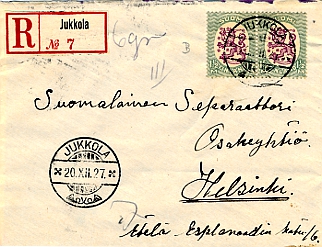 R
Jukkola
№ 7
6gr
B
III
SUOMI
JUKKOLA
Suomalainen Separaattori
Osakeyhtiö
Helsinki
JUKKOLA
20.XII.27.
Etelä-Esplanaadin katu/6.